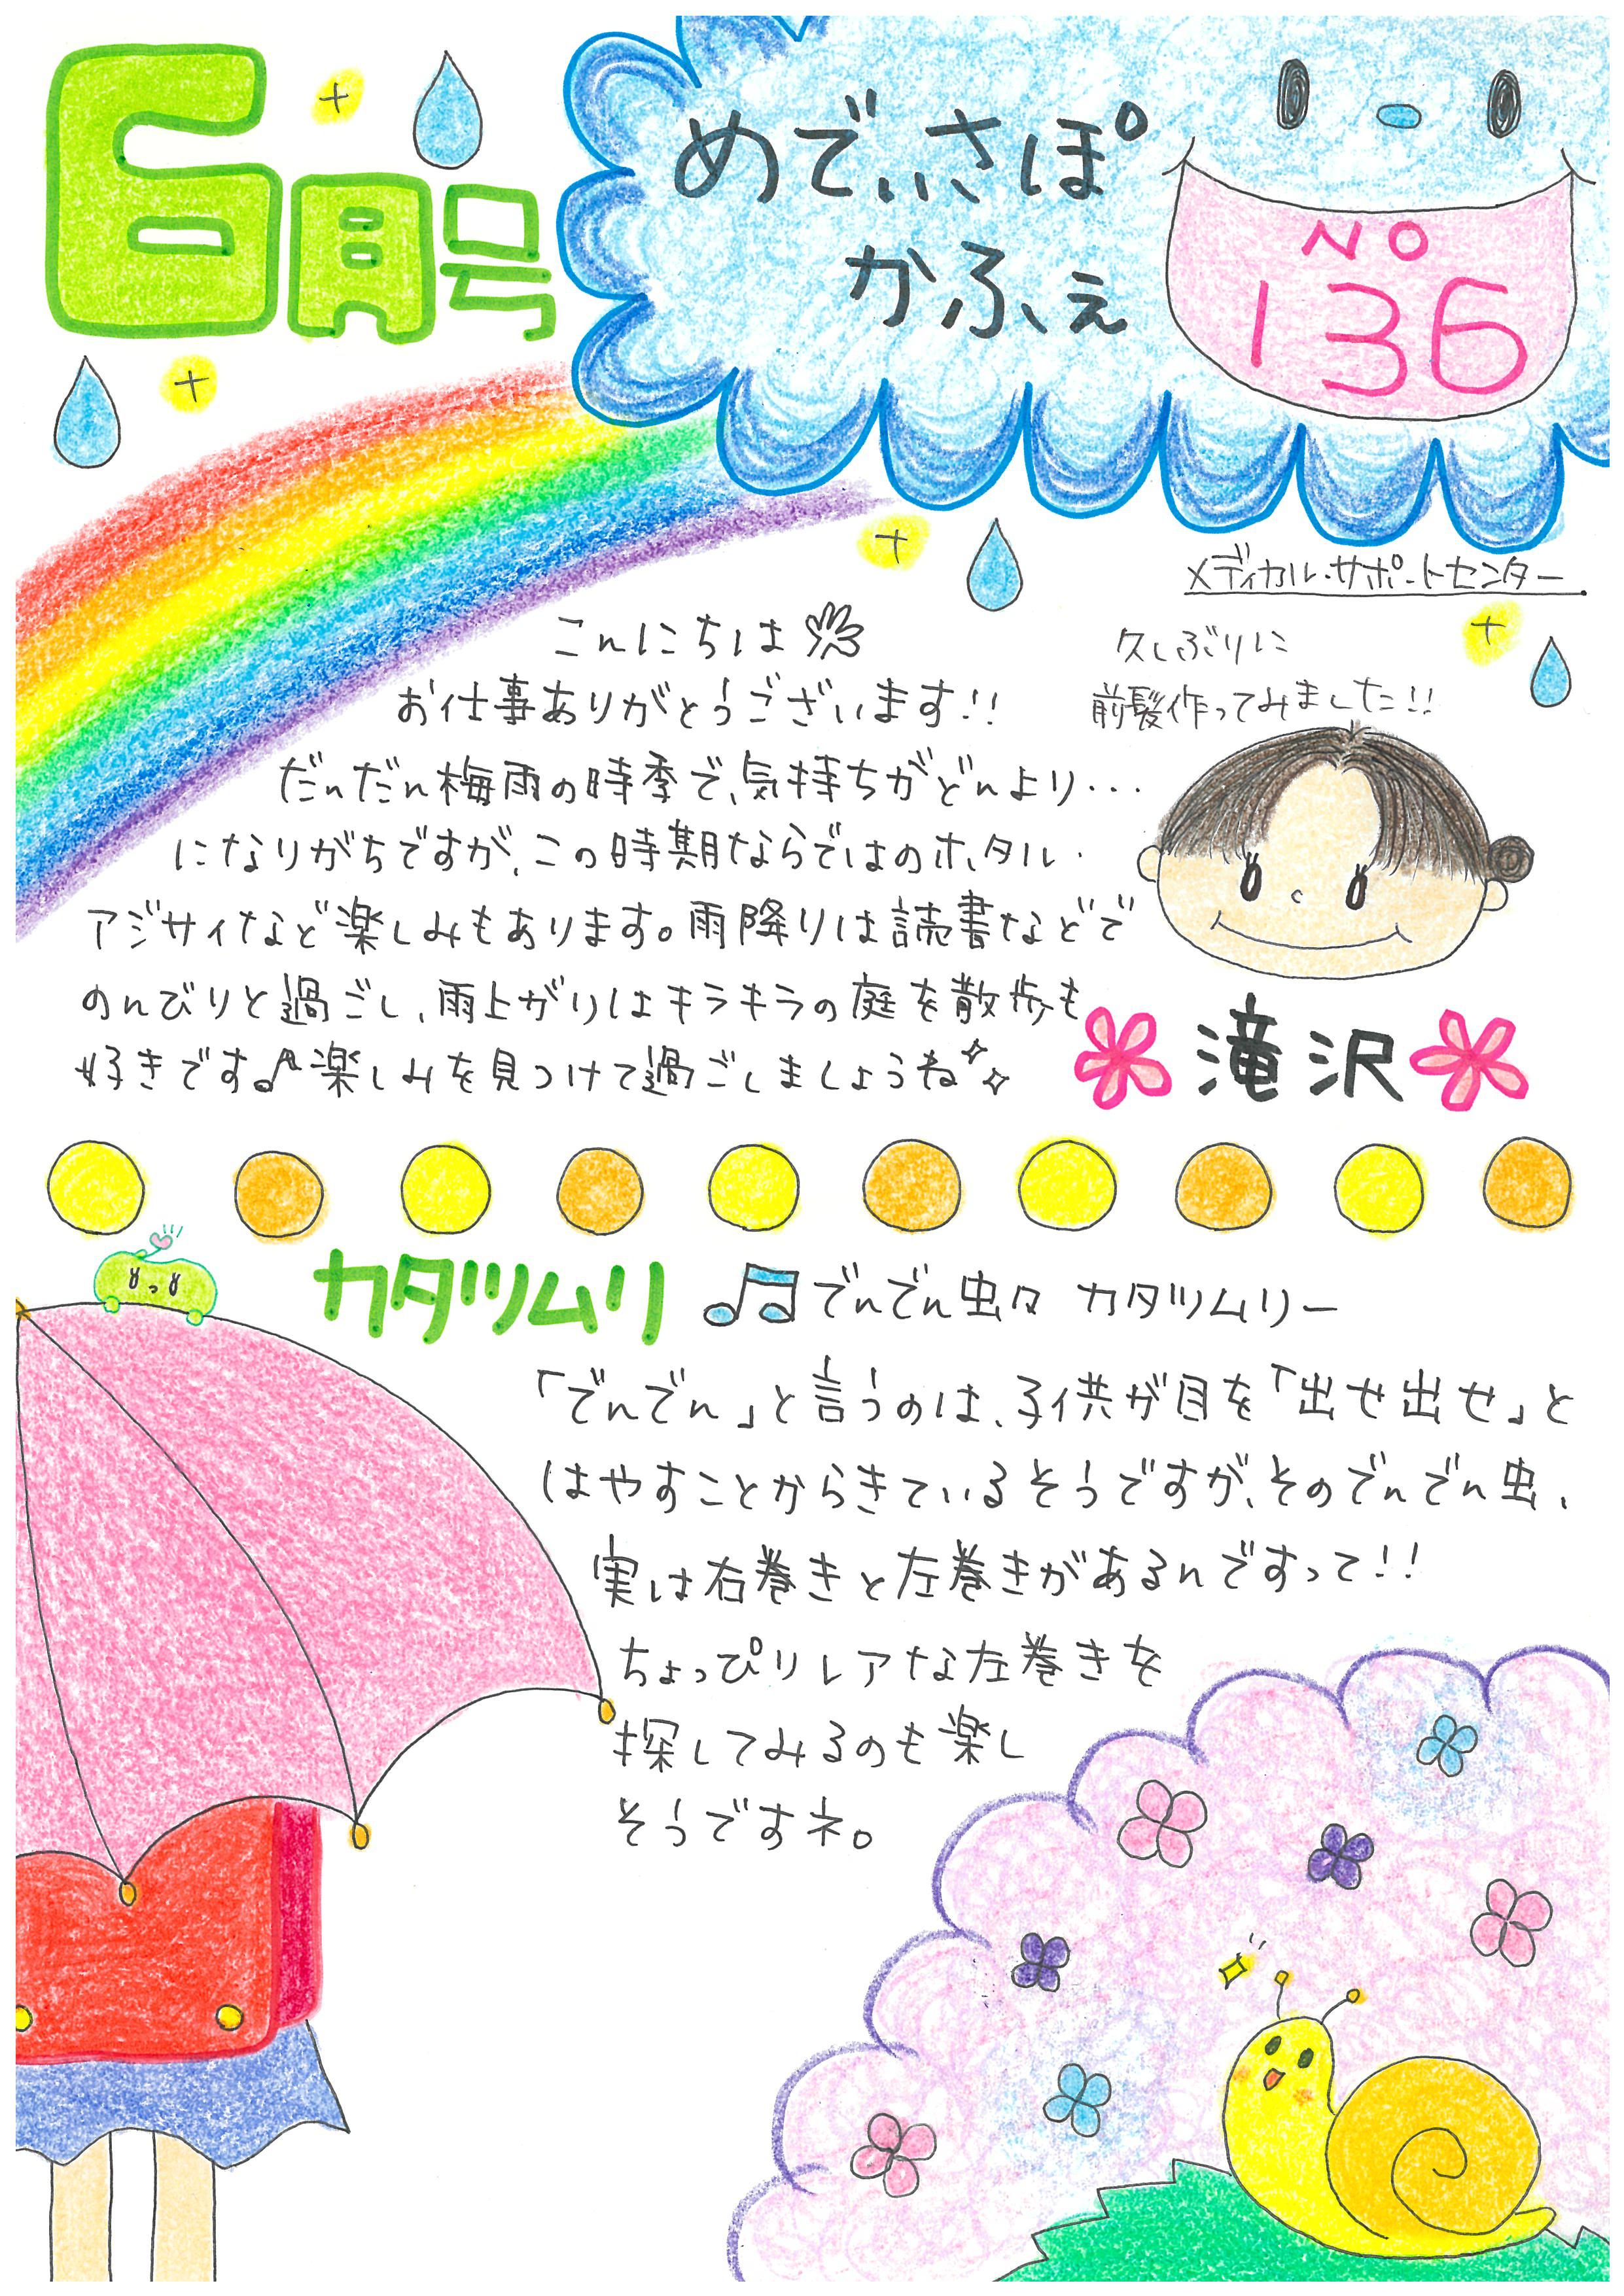 6月号
めでぃさぽ
かふぇ
NO
136
メディカル・サポートセンター
こんにちは
お仕事ありがとうございます!!
だんだん梅雨の時季で、気持ちがどんより・・・
になりがちですが、この時期ならではのホタル・
アジサイなど楽しみもあります。雨降りは読書などで
のんびりと過ごし、雨上がりはキラキラの庭を散歩も
好きです♪楽しみを見つけて過ごしましょうね
久しぶりに
前髪作ってみました!!
滝沢
カタツムリ
♫でんでん虫々 カタツムリー
「でんでん」と言うのは、子供が目を「出せ出せ」と
はやすことからきているそうですが、そのでんでん虫、
実は右巻きと左巻きがあるんですって!!
ちょっぴりレアな左巻きを
探してみるのも楽し
そうですネ。